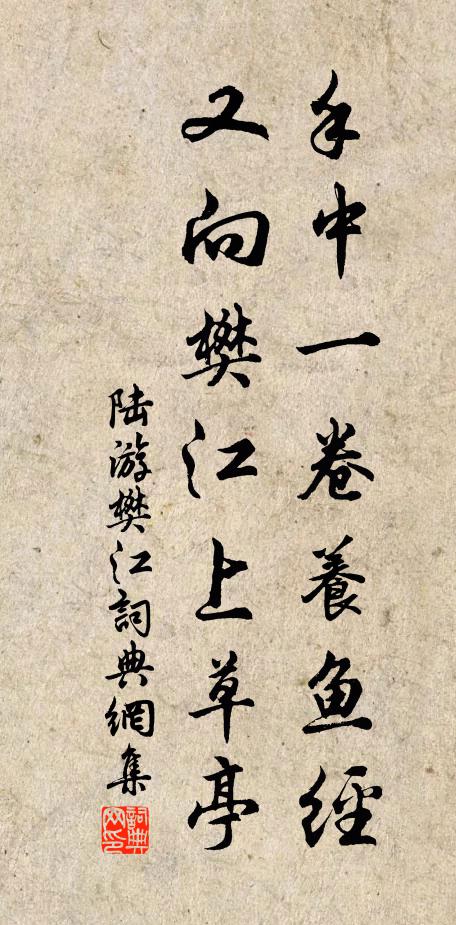 手中一卷養魚經
又向樊江上草亭
陆游樊江詞典網集
詞典網印